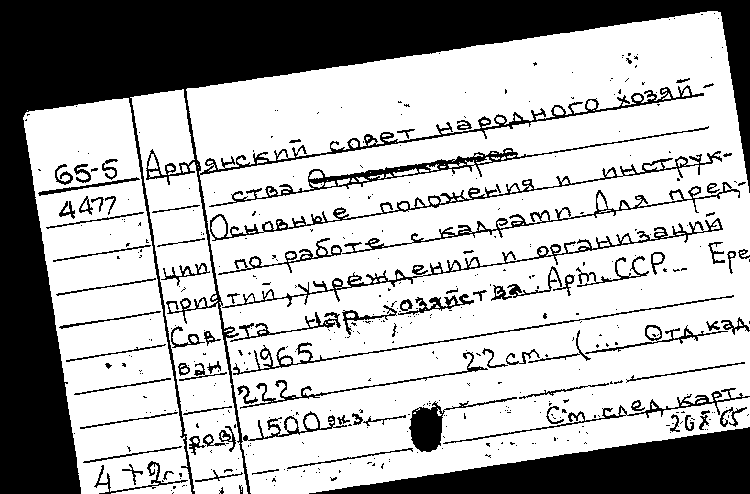 65-5 Армянский совет народного хозяй-
4477 ства. Отдел кадров.
Основные положения и инструк-
ции по работе с кадрами. Для пред-
приятий, учреждений и организаций
Совета нар. хозяйства Арм. ССР. Ере
ван, 1965.
222 с. 22 см. (... Отд. кад
ров). 1500 экз.
См. след. карт.
4+2г. 20 X 65